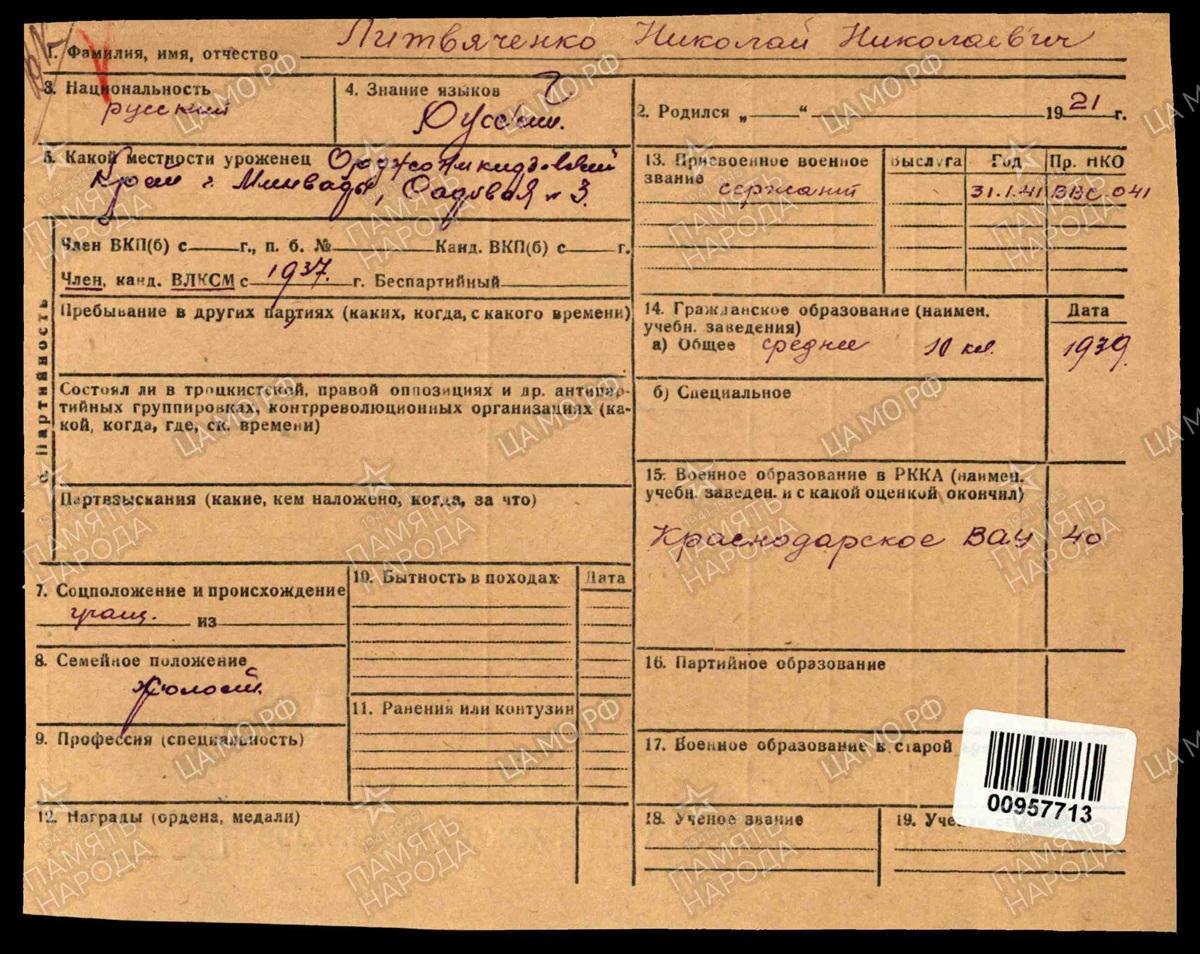 1. Фамилия, имя, отчество Литвяченко Николай Николаевич
3. Национальность русский
4. Знание языков Русским.
2. Родился „ “ 1921 г.
5. Какой местности уроженец Орджоникидзевский
край г. Минводы, Садовая № 3.
6. Партийность
Член ВКП(б) с г., п. б. № Канд. ВКП(б) с г.
Член, канд. ВЛКСМ с 1937. г. Беспартийный
Пребывание в других партиях (каких, когда, с какого времени)
Состоял ли в троцкистской, правой оппозициях и др. антипар-
тийных группировках, контрреволюционных организациях (ка-
кой, когда, где, ск. времени)
Партвзыскания (какие, кем наложено, когда, за что)
7. Соцположение и происхождение
из
8. Семейное положение
холост.
9. Профессия (специальность)
10. Бытность в походах Дата
11. Ранения или контузии
12. Награды (ордена, медали)
13. Присвоенное военное
звание сержант
Выслуга Год Пр. НКО
31.1.41 ВВС 041
14. Гражданское образование (наимен.
учебн. заведения)
Дата
а) Общее среднее 10 кл. 1939.
б) Специальное
15. Военное образование в РККА (наимен.
учебн. заведен. и с какой оценкой окончил)
Краснодарское ВАУ 40
16. Партийное образование
17. Военное образование в старой
18. Ученое звание
19. Уче
00957713
ЦАМО.РФ
ПАМЯТЬ
НАРОДА
1941-1945